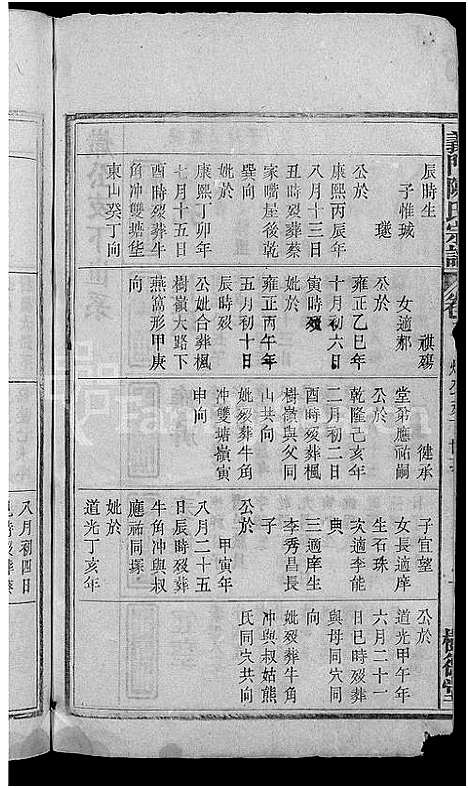 義門陳氏宗譜
樹德堂
辰時生
子惟珹
璲
公於
康熙丙辰年
八月十三日
丑時歿葬蔡
家嘴屋後乾
巽向
妣於
康熙丁卯年
七月十五日
酉時歿葬牛
角冲雙塘塋
東山癸丁向
祺殤
女適鄭
公於
雍正乙巳年
十月初六日
寅時歿
妣於
雍正丙午年
五月初十日
辰時歿
公妣合葬楓
樹嶺大路下
燕窩形甲庚
向
健承
堂弟應祐嗣
公於
乾隆己亥年
二月初二日
酉時歿葬楓
樹嶺與父同
山共向
妣歿葬牛角
冲雙塘嶺寅
申向
子宜望
女長適庠
生石珠
次適李能
典
三適庠生
李秀昌長
子
公於
甲寅年
八月二十五
日辰時歿葬
牛角冲與叔
應祐同塚
妣於
道光丁亥年
公於
道光甲午年
六月二十一
日巳時歿葬
與母同穴同
向
妣歿葬牛角
冲與叔姑熊
氏同穴共向
八月初四日